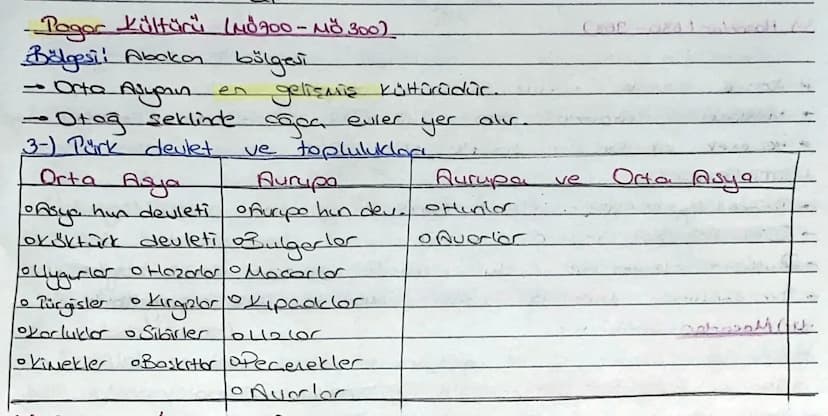 Tagar Kültürü (MÖ700 - MÖ300)
Bölgesi: Abakan bölgesi
→ Orta Asyanın en gelişmiş kültürüdür.
→ Otağ şeklinde ağaç evler yer alır.
3-) Türk devlet ve toplulukları
Orta Asya Avrupa Avrupa ve Orta Asya
o Asya hun devleti o Avrupa hun dev. o Hunlar
o Köktürk devleti o Bulgarlar o Avarlar
o Uygurlar o Hazarlar o Macarlar
o Türgişler o Kırgızlar o Kıpçaklar
o Karluklar o Sibirler o Uzlar
o Kimekler o Başkırtlar o Peçenekler
o Avarlar